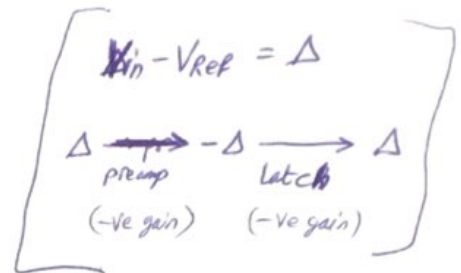 Vin - VRef = Δ
Δ → -Δ → Δ
preamp Latch
(-ve gain) (-ve gain)